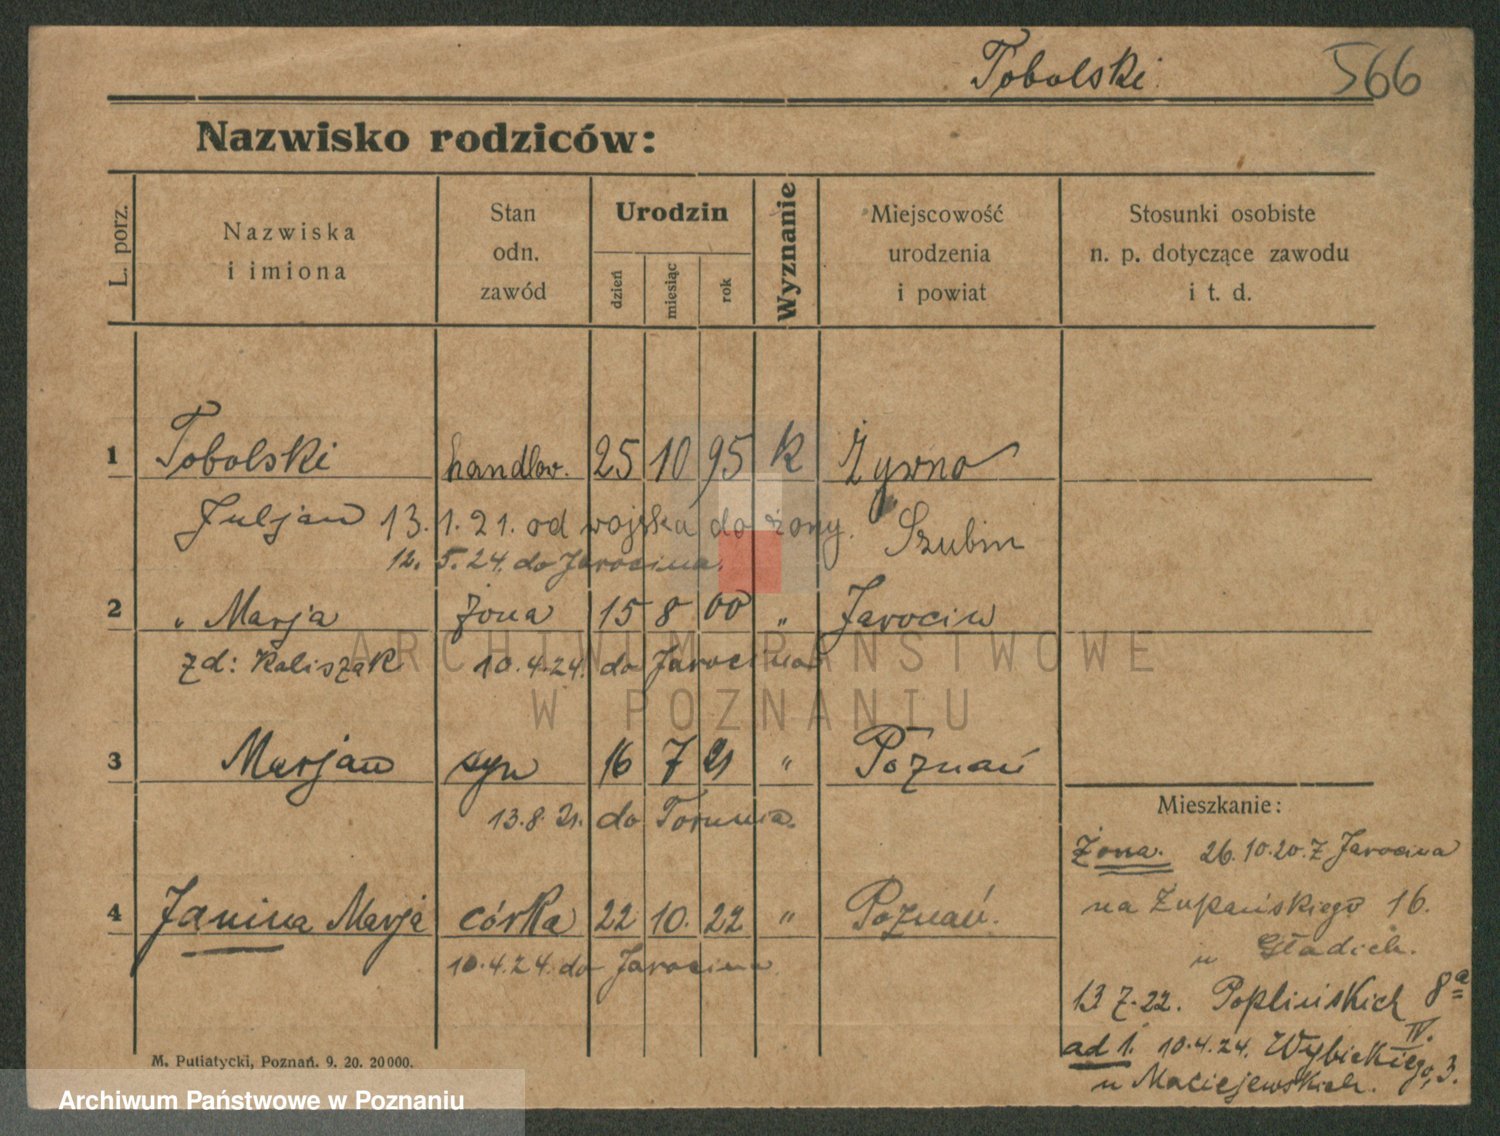 Tobolski 566
Nazwisko rodziców:
L. porz.
Nazwiska
i imiona
Stan
odn.
zawód
Urodzin
dzień
miesiąc
rok
Wyznanie
Miejscowość
urodzenia
i powiat
Stosunki osobiste
n. p. dotyczące zawodu
i t. d.
1 Tobolski handlow. 25 10 95 k Żywno
Juljan 13.1.21. od wojska do żony. Szubin
12. 5.24. do Jarocina.
2 " Marja żona 15 8 00 " Jarocin
zd: Kaliszak 10.4.24. do Jarocina
ARCHIWUM PAŃSTWOWE
W POZNANIU
3 Marjan syn 16 7 21 " Poznań
13.8.21. do Torunia.
4 Janina Marja córka 22 10. 22 " Poznań.
10.4.24. do Jarocina
Mieszkanie:
Żona. 26.10.20. z Jarocina
na Żupańskiego 16.
u Gładich.
13.7.22. Poplińskich 8a
IV.
ad 1. 10.4.24. Wybickiego, 3.
u Maciejewskich.
M. Putiatycki, Poznań. 9. 20. 20000.
Archiwum Państwowe w Poznaniu